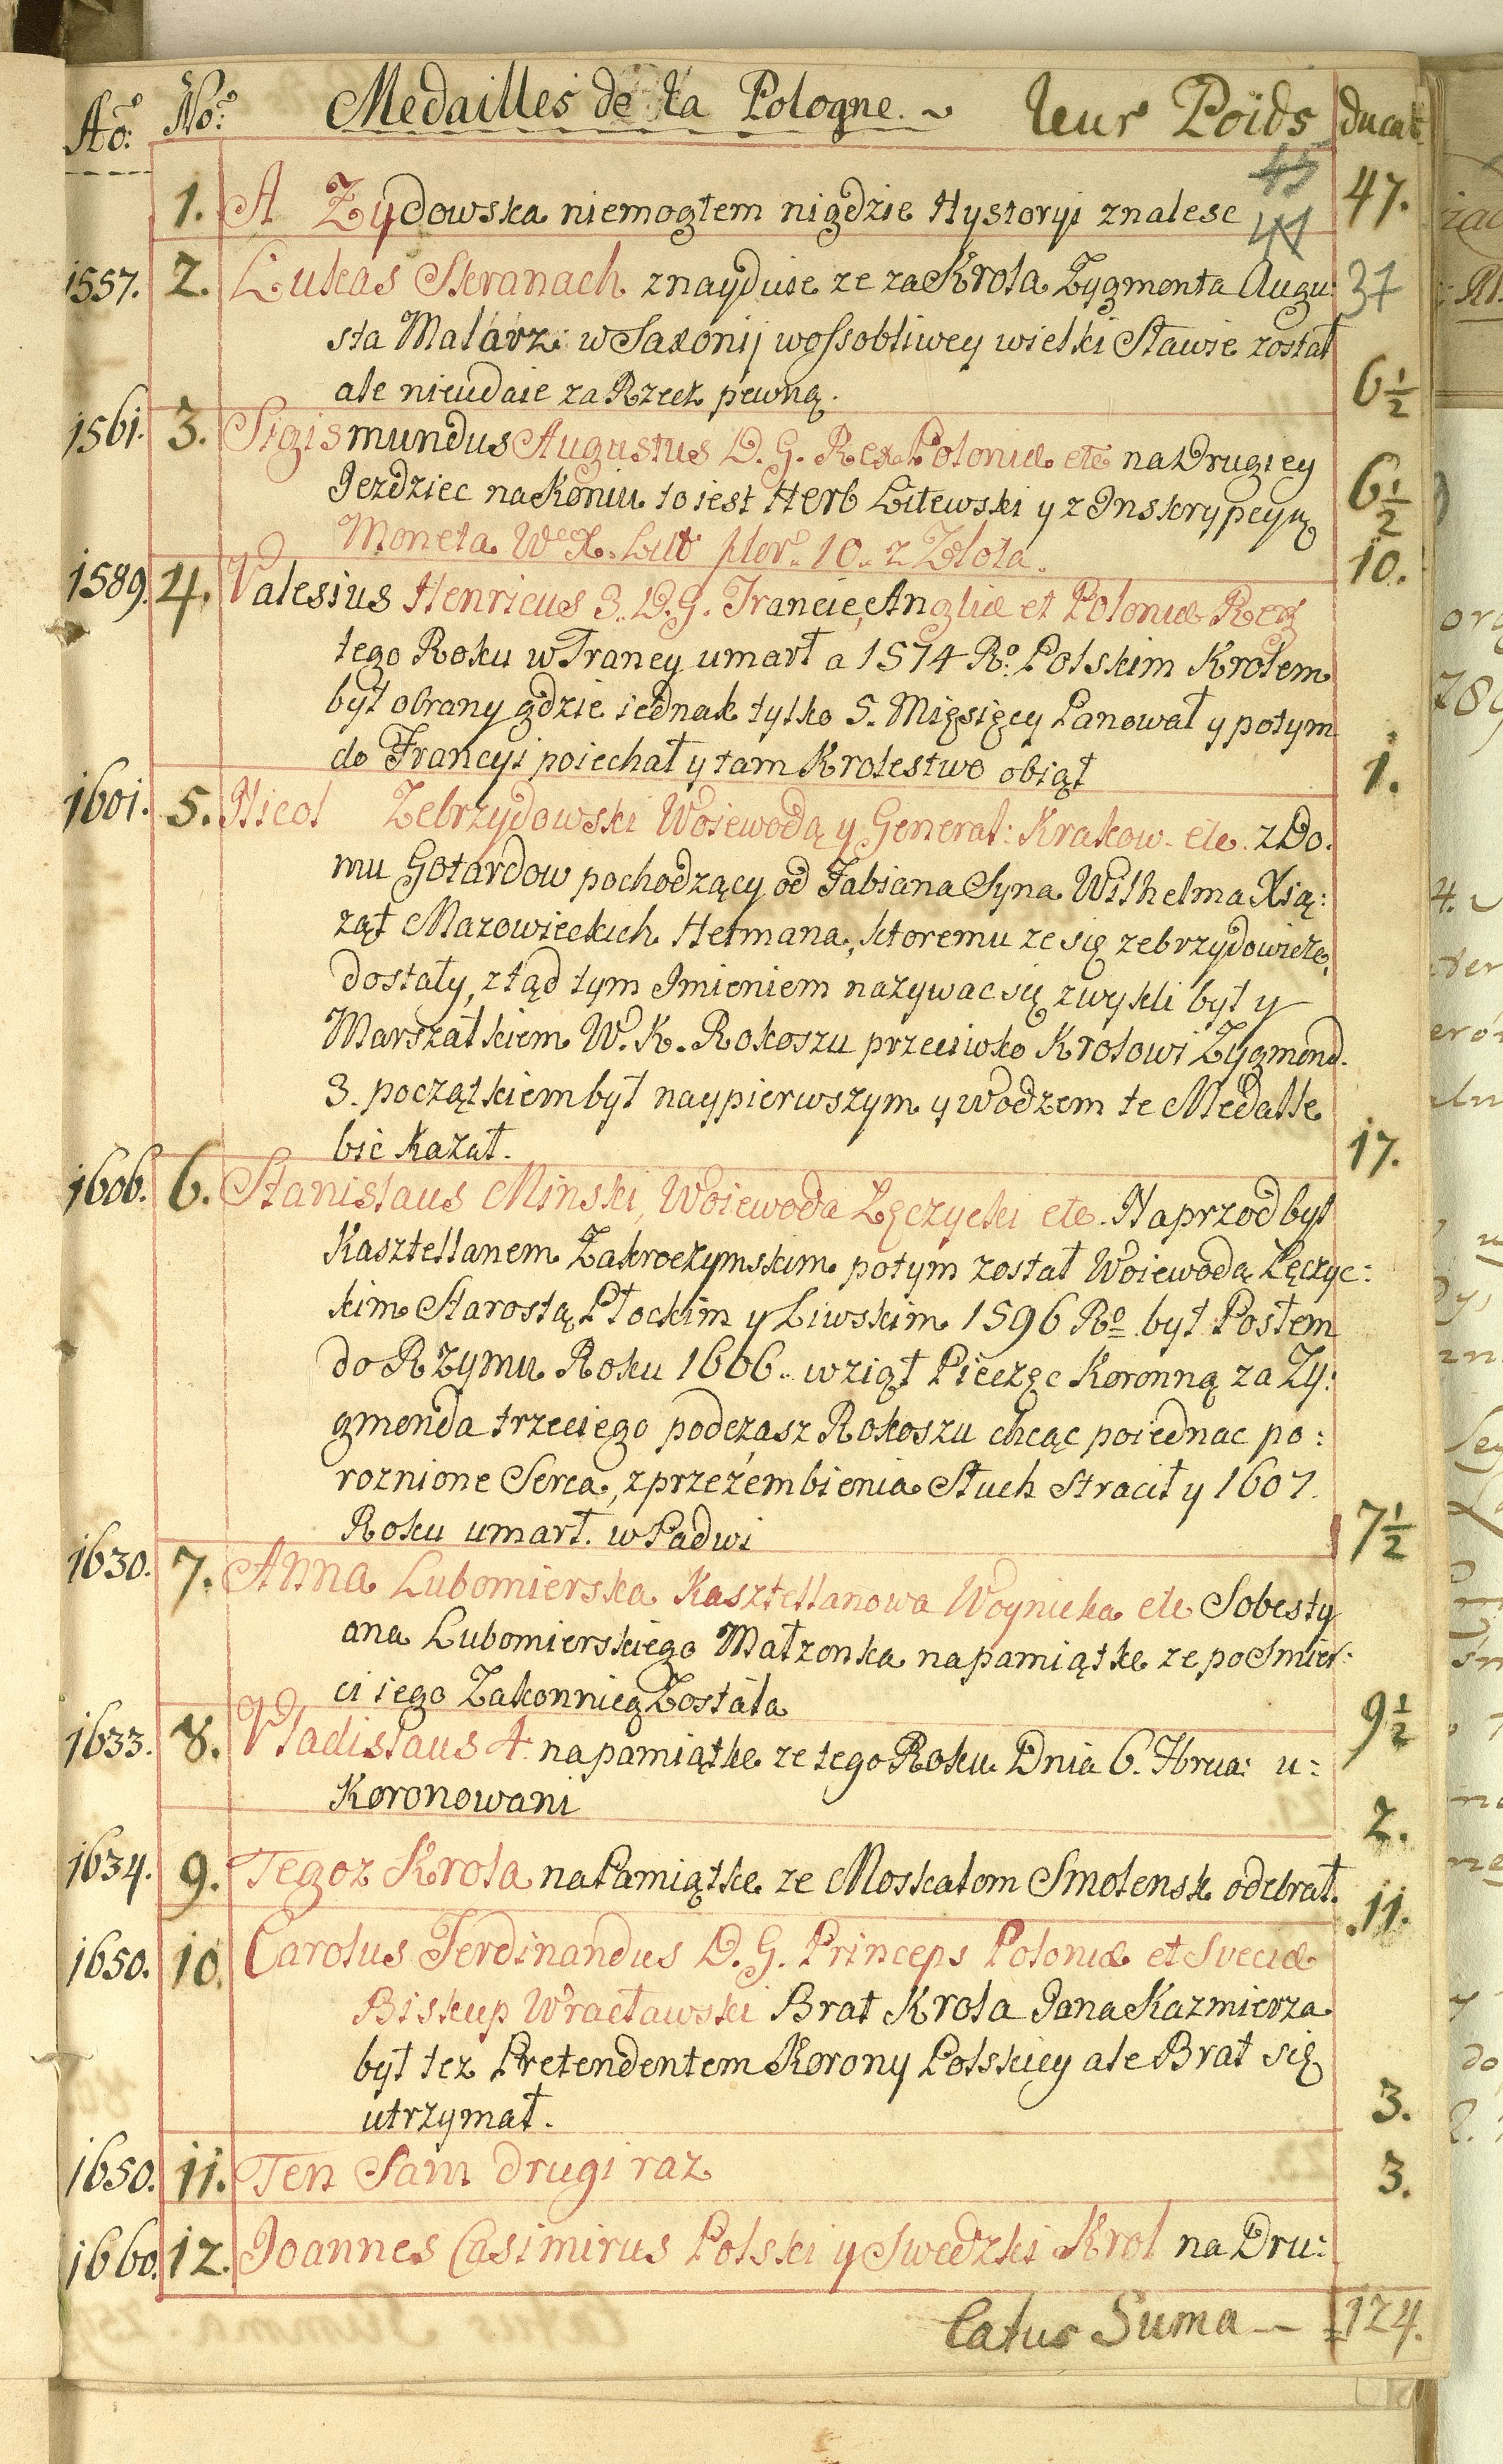 Aō: No: Medailles de la Pologne. ~ leur Poids ducat
1. A Zydowska niemogłem nigdzie Hystoryi znalesc 47.
1557. 2. Lukas Skranach znayduie ze za Krola Zygmonta Augu: 37
sta Malarz w Saxonij wossobliwey wielki Sławie został
ale nieudaie za Rzecz pewną. 6 1/2
1561. 3. Sigismundus Augustus D. G. Rex Poloniæ etc na Drugiey
Jezdziec na Koniu to iest Herb Litewski y z Inskrypcyą 6 1/2
Moneta W. X. Lit flor. 10. z Złota. 10.
1589. 4. Valesius Henricus 3. D. G. Francie, Angliæ et Poloniæ Rex
tego Roku w Francy umarł a 1574 Ro: Polskim Krolem
był obrany gdzie iednak tylko 5. Mięsięcy Panował y potym
do Francyi poiechał y tam Krolestwo obiął 1.
1601. 5. Nicol Zebrzydowski Woiewodą y General: Krakow. etc. z Do.
mu Gotardow pochodzący od Fabiana Syna Wilhelma Xią:
ząt Mazowieckich Hetmana, ktoremu ze się zebrzydowice
dostały, ztąd tym Imieniem nazywac się zwykli był y
Marszałkiem W. K. Rokoszu przeciwko Krolowi Zygmond.
3. początkiem był naypierwszym y wodzem te Medalle
bić Kazał. 17.
1606. 6. Stanislaus Minski, Woiewoda Lęczycki etc. Naprzod był
Kasztellanem Zakroczymskim potym został Woiewodą Lęczyc:
kim Starostą Płockim y Liwskim 1596 Ro był Posłem
do Rzymu Roku 1606. wziął Pieczęc Koronną za Zy:
gmonda trzeciego podczasz Rokoszu chcąc poiednac po:
roznione Serca, z przeźembienia Słuch Stracił y 1607.
Roku umarł. w Padwi 7 1/2
1630. 7. Anna Lubomierska Kasztellanowa Woynicka etc Sobesty
ana Lubomierskiego Małzonka na pamiątke ze po Smier:
ci iego Zakonnicą Została 9 1/2
1633. 8. Vladislaus 4. na pamiątke ze tego Roku Dnia 6. Hbrua: u:
Koronowani 2.
1634. 9. Tegoz Krola na Pamiątke ze Moskalom Smolensk odebrał. 11.
1650. 10. Carolus Ferdinandus D. G. Princeps Poloniæ et Sveciæ
Biskup Wracławski Brat Krola Jana Kazmierza
był tez Pretendentem Korony Polskiey ale Brat się
utrzymał. 3.
1650. 11. Ten Sam drugi raz 3.
1660. 12. Joannes Casimirus Polski y Swedzki Krol na Dru:
Latus Suma — 124.